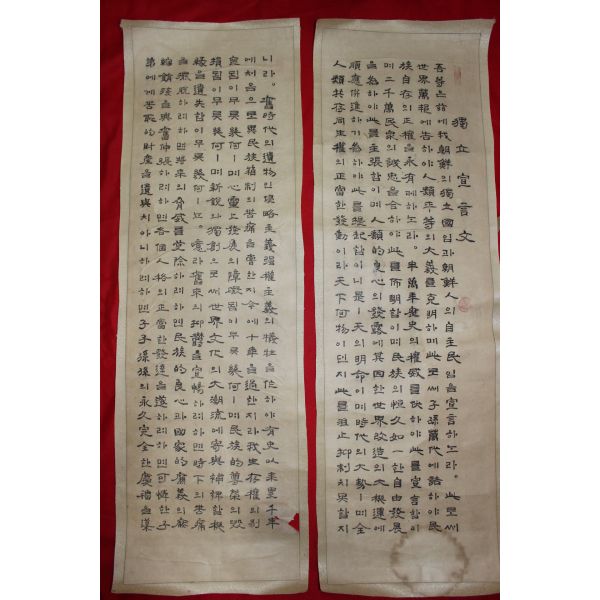 獨立宣言文
吾等은玆에我朝鮮의獨立國임과朝鮮人의自主民임을宣言하노라。此로써
世界萬邦에告하야人類平等의大義를克明하며此로써子孫萬代에誥하야民
族自存의正權을永有케하노라。半萬年歷史의權威를仗하야此를宣言함이
며二千萬民衆의誠忠을合하야此를佈明함이며民族의恒久如一한自由發展
을爲하야此를主張함이며人類的良心의發露에基因한世界改造의大機運에
順應併進하기爲하야此를提起함이니是ㅣ天의明命이며時代의大勢ㅣ며全
人類共存同生權의正當한發動이라天下何物이던지此를沮止抑制치못할지
니라。舊時代의遺物인侵略主義强權主義의犧牲을作하야有史以來累千年
에처음으로異民族箝制의苦痛을嘗한지今에十年을過한지라我生存權의剝
喪됨이무릇幾何ㅣ며心靈上發展의障礙됨이무릇幾何ㅣ며民族的尊榮의毁
損됨이무릇幾何ㅣ며新銳와獨創으로써世界文化의大潮流에寄與補裨할機
緣을遺失함이무릇幾何ㅣ뇨。噫라舊來의抑鬱을宣暢하려하면時下의苦痛
을擺脫하려하면將來의脅威를芟除하려하면民族的良心과國家的廉義의壓
縮銷殘을興奮伸張하려하면各個人格의正當한發達을遂하려하면可憐한子
弟에게苦恥的財産을遺與치아니하려하면子子孫孫의永久完全한慶福을導